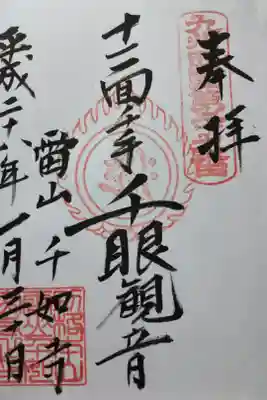 奉拝
十一面千手千眼観音
雷山千如寺
平成二十八年一月三十日